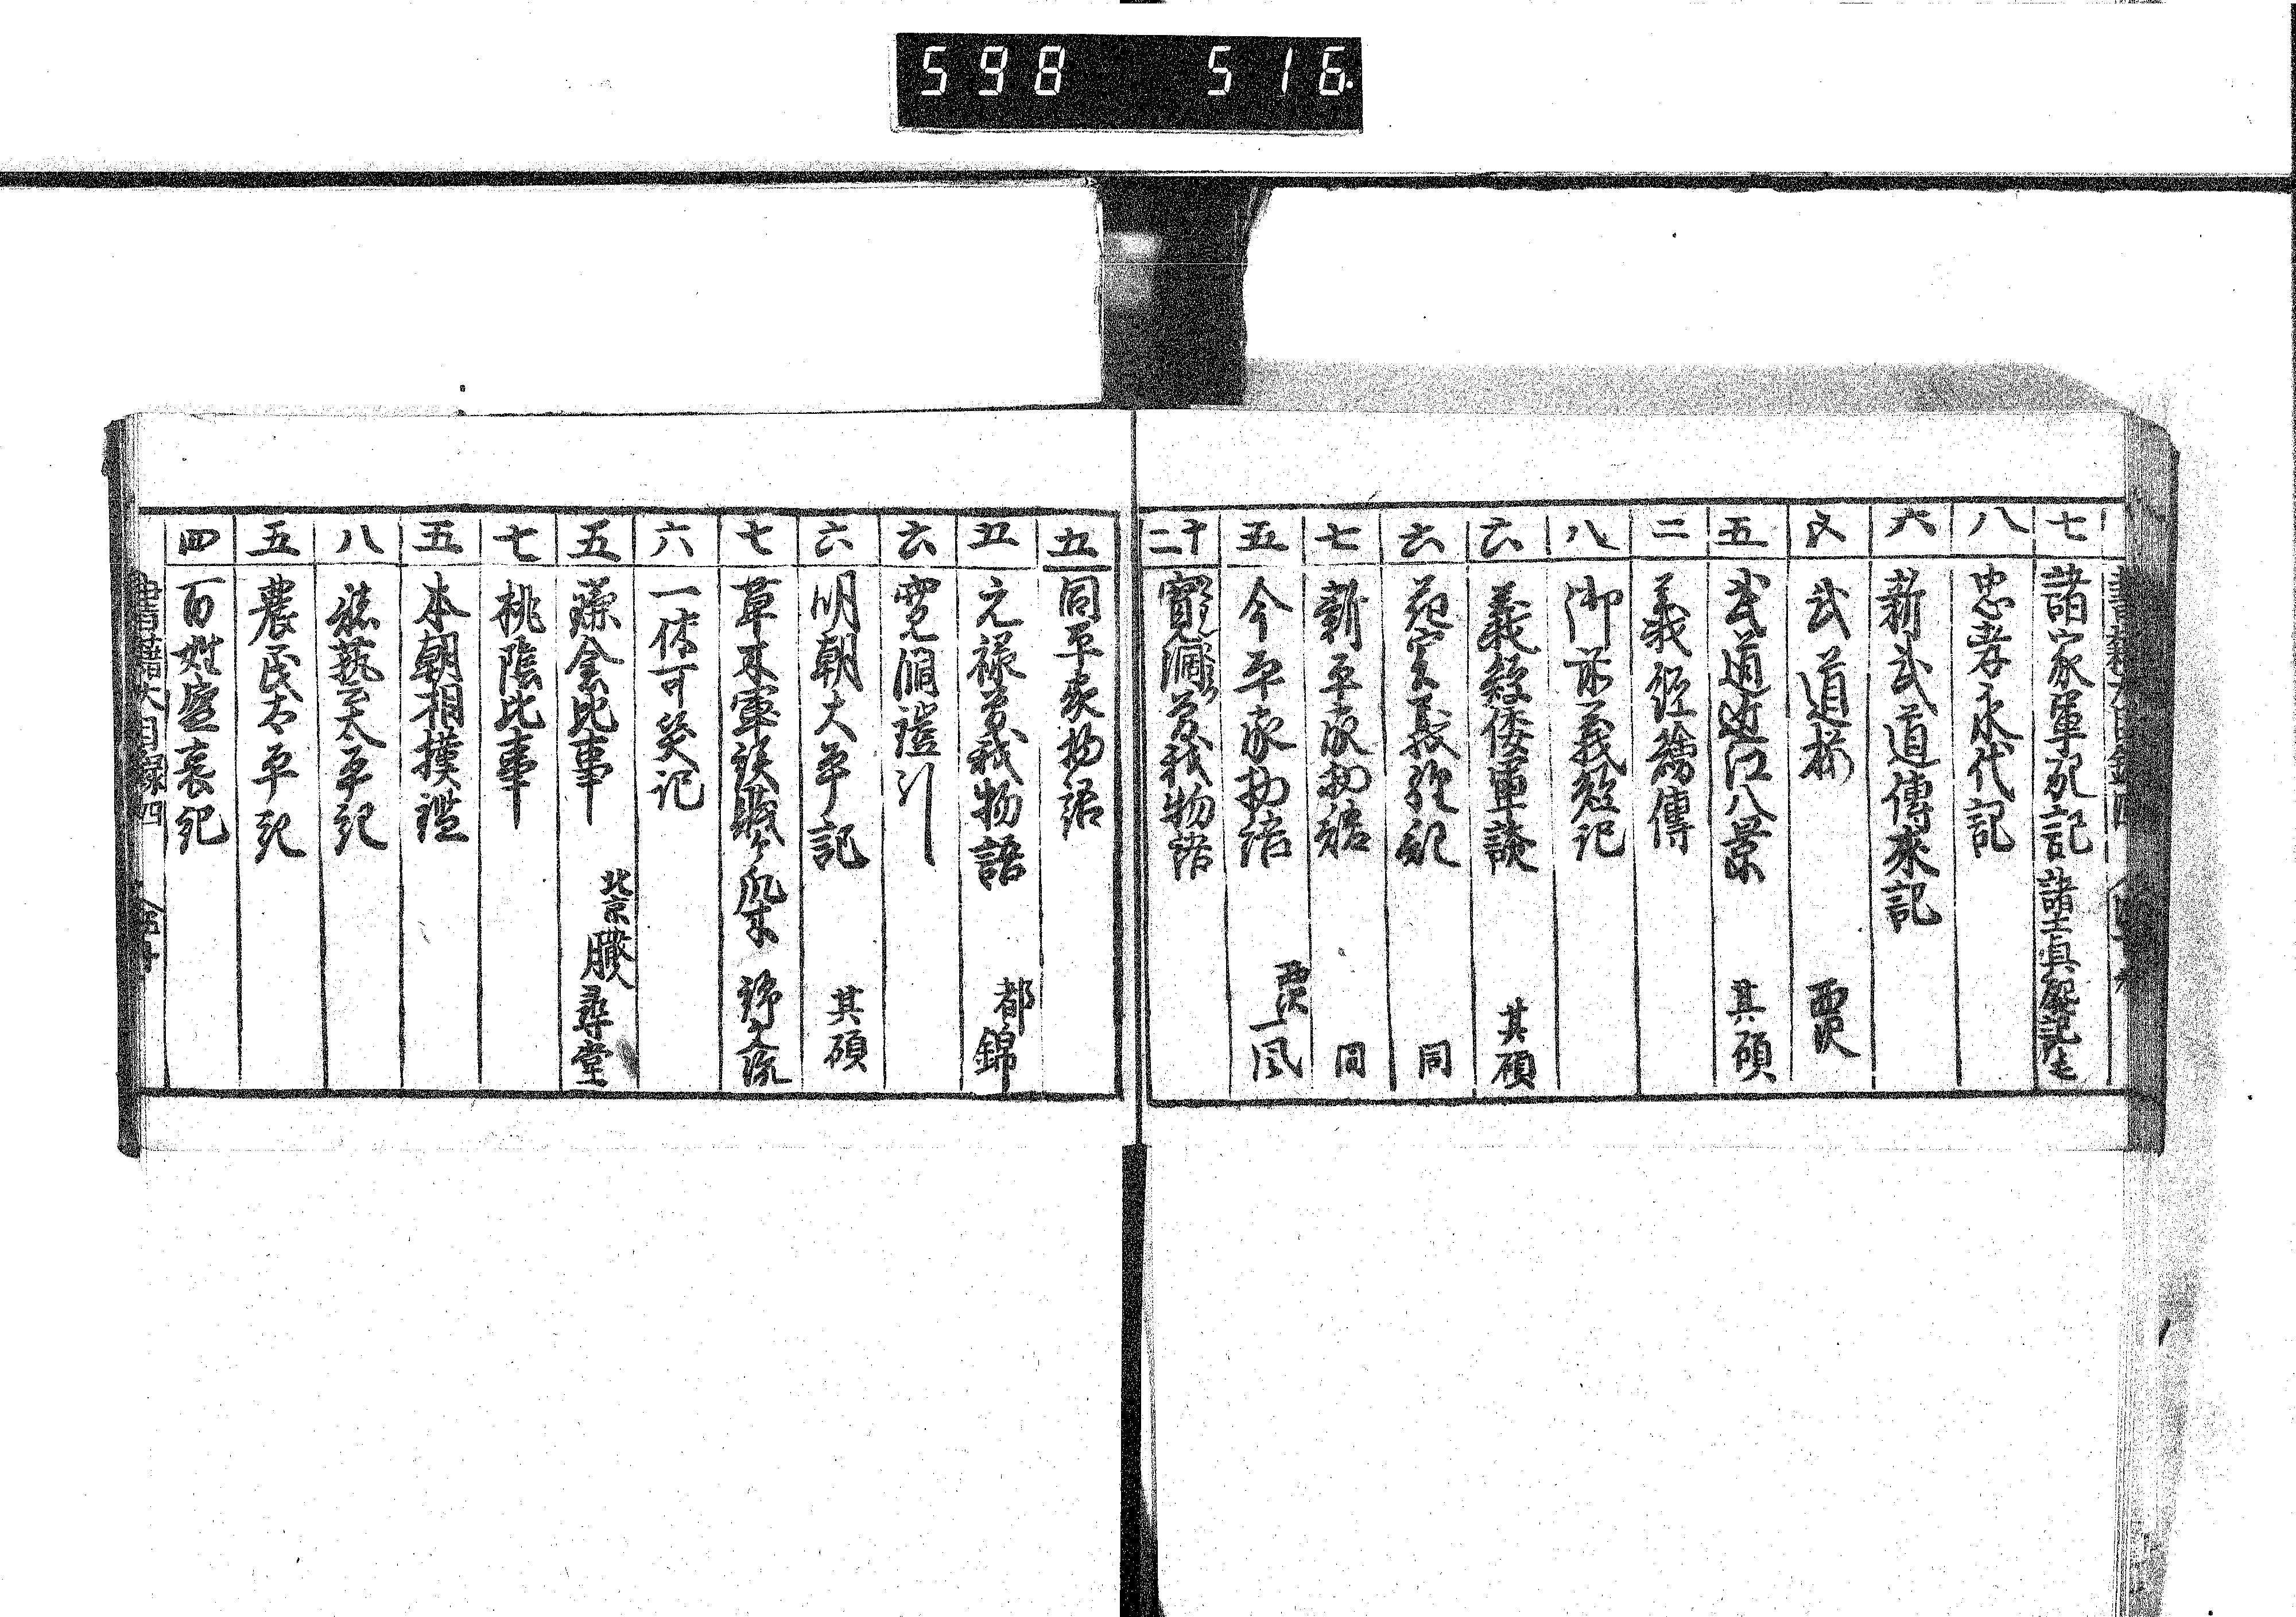 598 516
七 諸家軍死記
八 忠孝永代記
六 新武道傳來記
五 武道桜 西沢
五 武道近江八景 其碩
二 義經勲傳
八 御前義經記
六 義經倭軍談 其磧
六 花実義經記 同
七 新平家物語 同
五 今平家物語 西沢一風
十二 寛濶曽我物語
五 同平家物語
五 元禄曽我物語 都錦
六 寛濶鎧引
六 明朝太平記 其碩
七 草木軍談賤ヶ爪木 錦文流
六 一休可笑記
五 鎌倉比事 北京 臓 尋堂
七 桃陰比事
五 本朝相撲鑑
八 諸藝太平記
五 農民太平記
四 百姓盛衰記
書籍大目録四